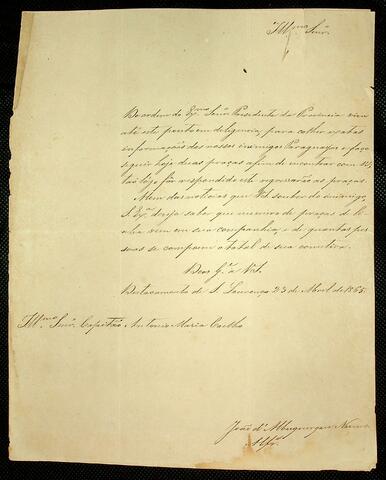 Illmo Senr.
De ordem do Exmo Senr Presidente da Provincia vim
até este ponto em deligencia, para colher exatas
informações dos nossos inimigos Paraguayos e faço
seguir hoje duas praças afim de encontrar com
tão logo for respondido este regressarão as praças.
Alem das noticias que Vsa souber do inimigo,
S. Exa deseja saber que numero de praças de li
nha vem em sua companhia, e de quantas pes
soas se compoem o total de sua comitiva.
Deos Ge a Vsa.
Destacamento de S. Lourenço 23 de Abril de 1865.
Illmo Senr. Capitão Antonio Maria Coelho
João d'Albuquerque
Alfes